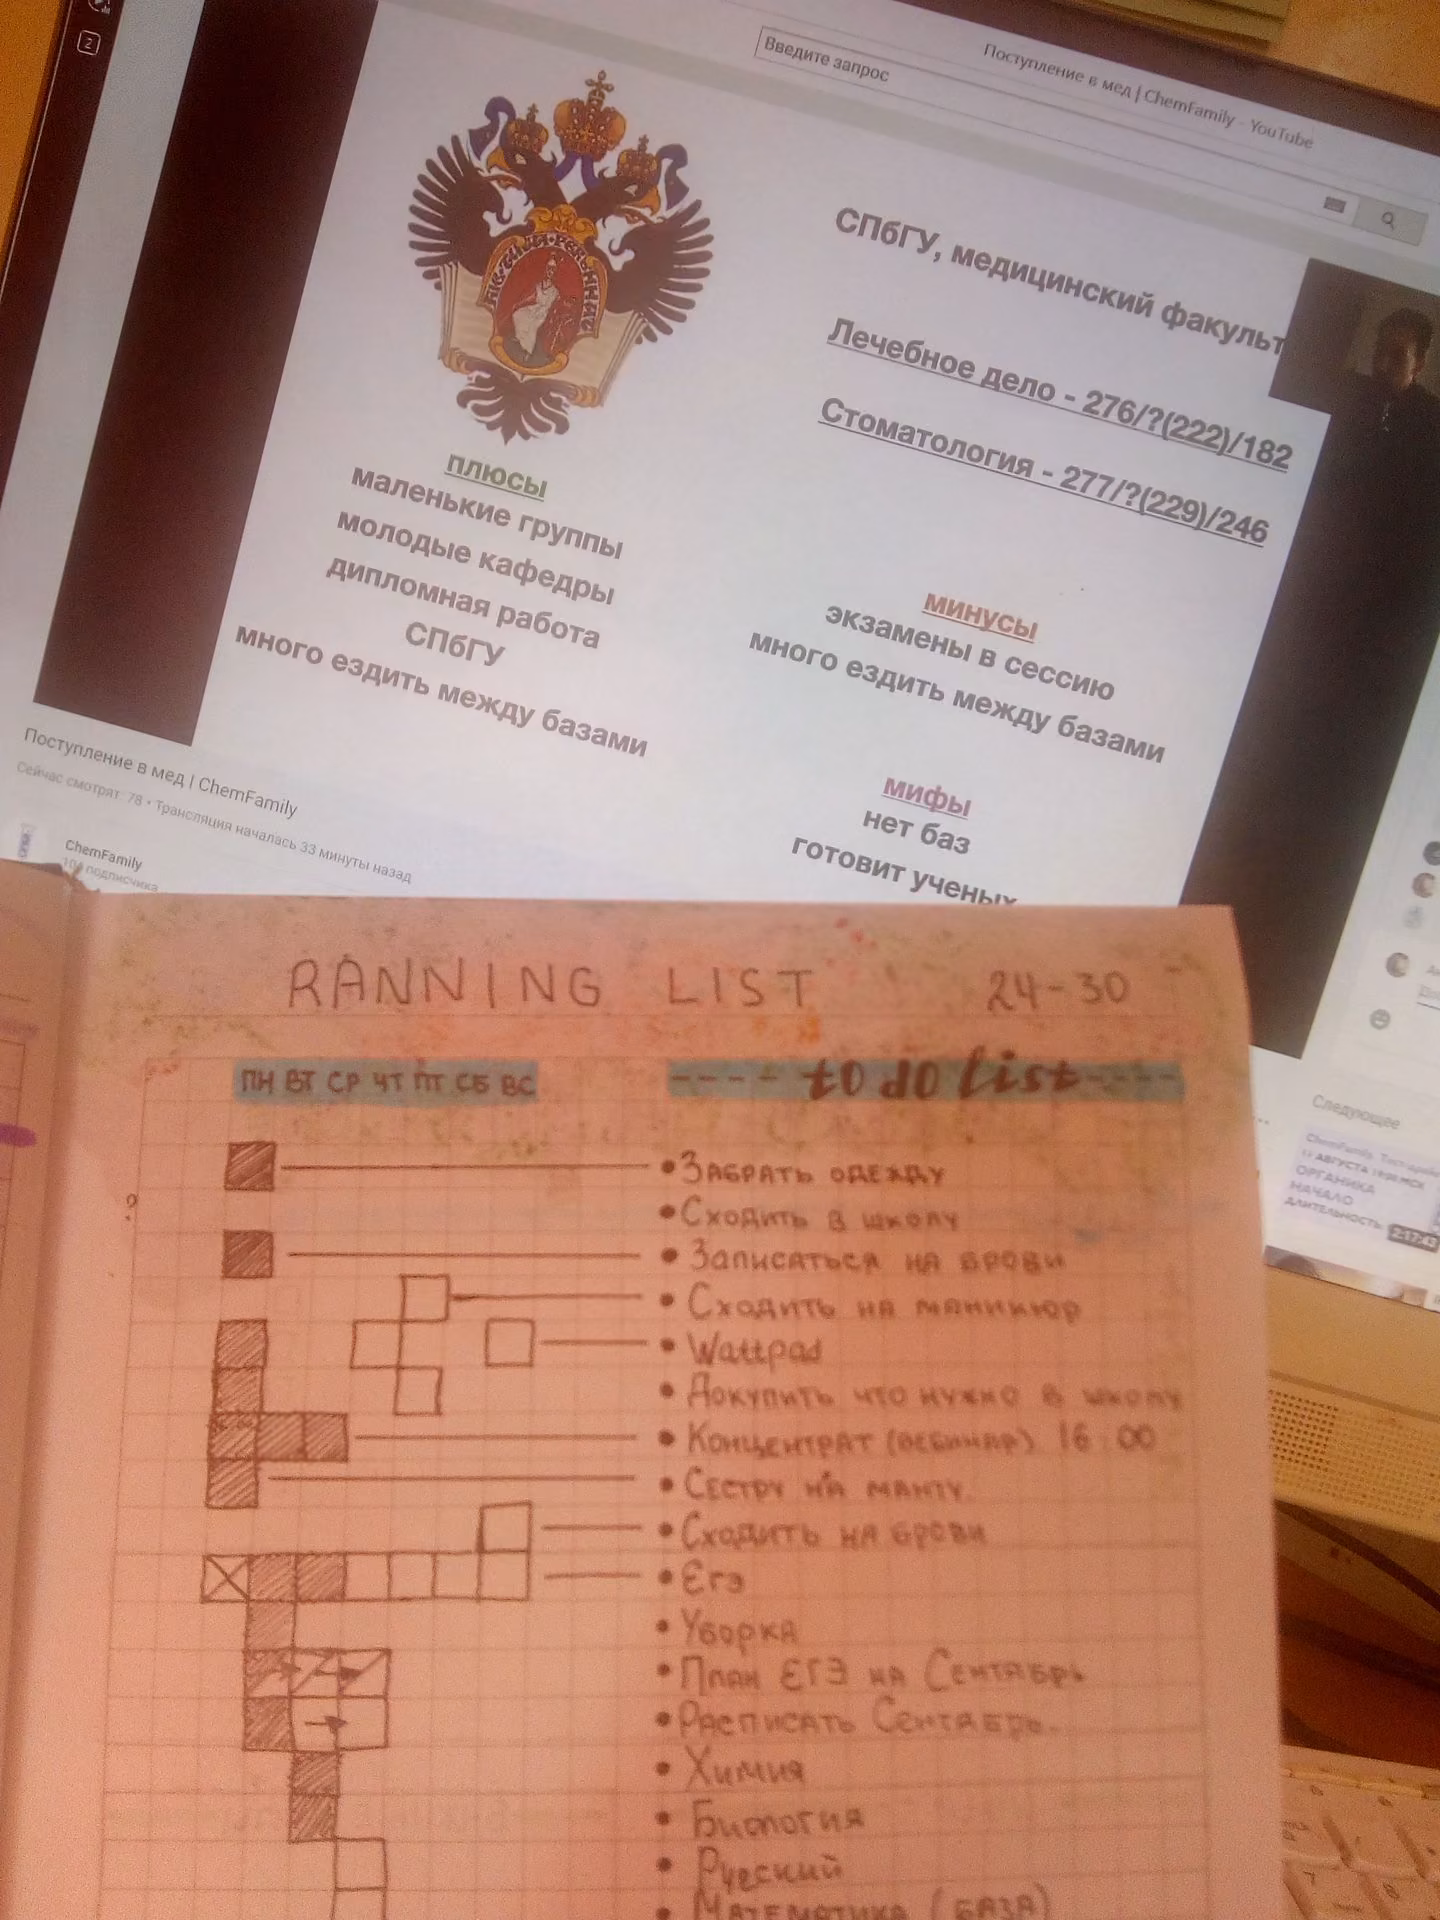 2
Поступление в мед | ChemFamily - YouTube
Введите запрос
СПбГУ, медицинский факульт
Лечебное дело - 276/?(222)/182
Стоматология - 277/?(229)/246
плюсы
маленькие группы
молодые кафедры
дипломная работа
СПбГУ
много ездить между базами
минусы
экзамены в сессию
много ездить между базами
мифы
нет баз
готовит ученых
Поступление в мед | ChemFamily
Сейчас смотрят: 78 • Трансляция началась 33 минуты назад
ChemFamily
104 подписчика
Следующее
ОРГАНИКА
НАЧАЛО
ДЛИТЕЛЬНОСТЬ
2:17:43
RANNING LIST 24-30
ПН ВТ СР ЧТ ПТ СБ ВС
---- to do list ----
?
• Забрать одежду
• Сходить в школу
• Записаться на брови
• Сходить на маникюр
• Wattpad
• Докупить что нужно в школу
• Концентрат (вебинар) 16:00
• Сестру на манту.
• Сходить на брови
• Егэ
• Уборка
• План ЕГЭ на Сентябрь
• Расписать Сентябрь.
• Химия
• Биология
• Русский
• Математика (база)